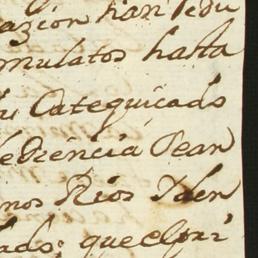 azion han redu
mulatos hasta
su Catequicado
bediencia Sean
nos Rios Yden
lado; que el pri